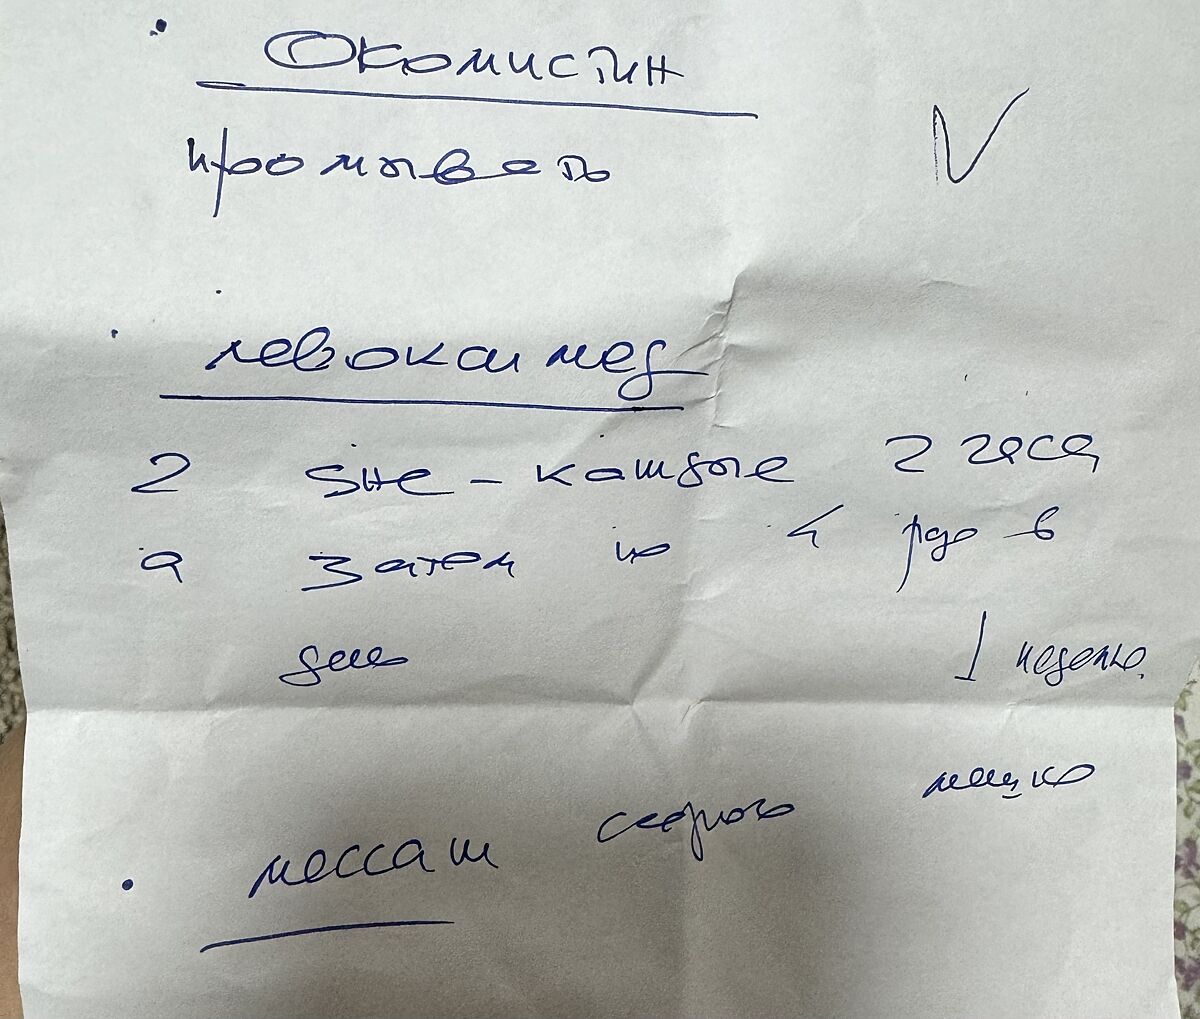 Окомистин
промывать
V
левоксимед
2 дне - каждые 2 часа
а затем по 4 раза в
день 1 неделю.
массаж слезного мешка